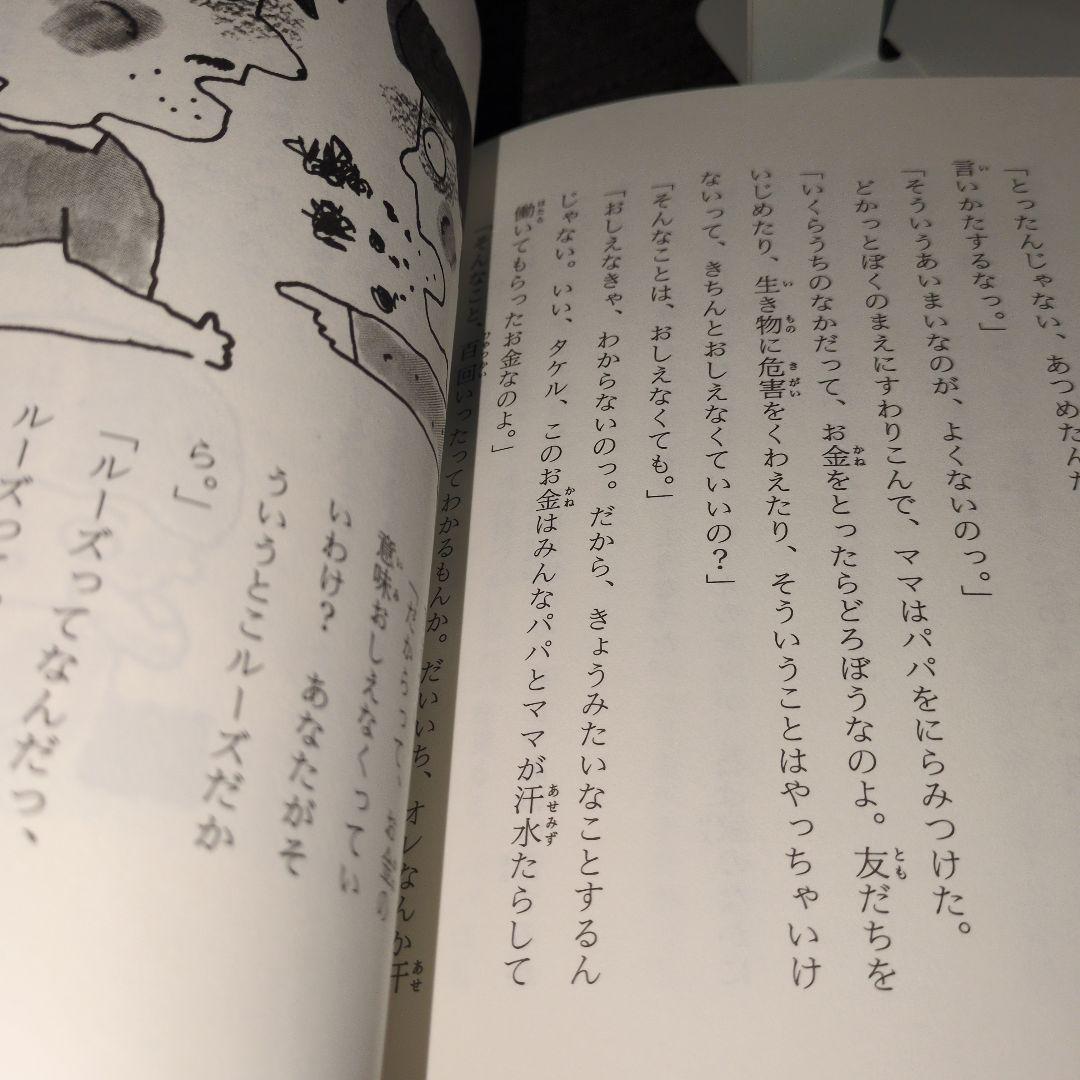 「とったんじゃない、あつめたんだ
言いかたするなっ。」
「そういうあいまいなのが、よくないのっ。」
どかっとぼくのまえにすわりこんで、ママはパパをにらみつけた。
「いくらうちのなかだって、お金をとったらどろぼうなのよ。友だちを
いじめたり、生き物に危害をくわえたり、そういうことはやっちゃいけ
ないって、きちんとおしえなくていいの？」
「そんなことは、おしえなくても。」
「おしえなきゃ、わからないのっ。だから、きょうみたいなことするん
じゃない。いい、タケル、このお金はみんなパパとママが汗水たらして
働いてもらったお金なのよ。」
「そんなこと、百回いったってわかるもんか。だいいち、オレなんか汗
「だからって、お金の
意味おしえなくってい
いわけ？　あなたがそ
ういうとこルーズだか
ら。」
「ルーズってなんだっ、
ルーズって